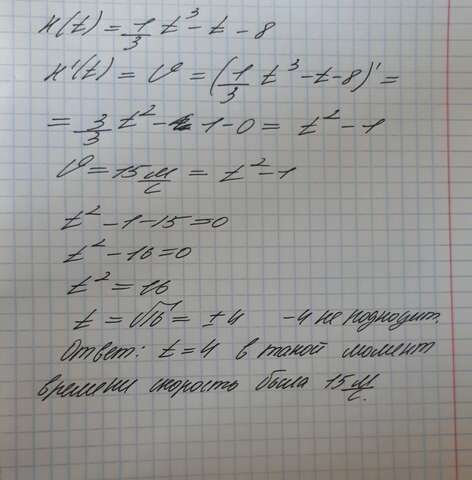 x(t) = 1/3 t³ - t - 8
x'(t) = v = (1/3 t³ - t - 8)' =
= 3/3 t² - 1 - 0 = t² - 1
v = 15 м/с = t² - 1
t² - 1 - 15 = 0
t² - 16 = 0
t² = 16
t = √16 = ± 4 -4 не подходит.
Ответ: t = 4 в такой момент
времени скорость была 15 м/с.